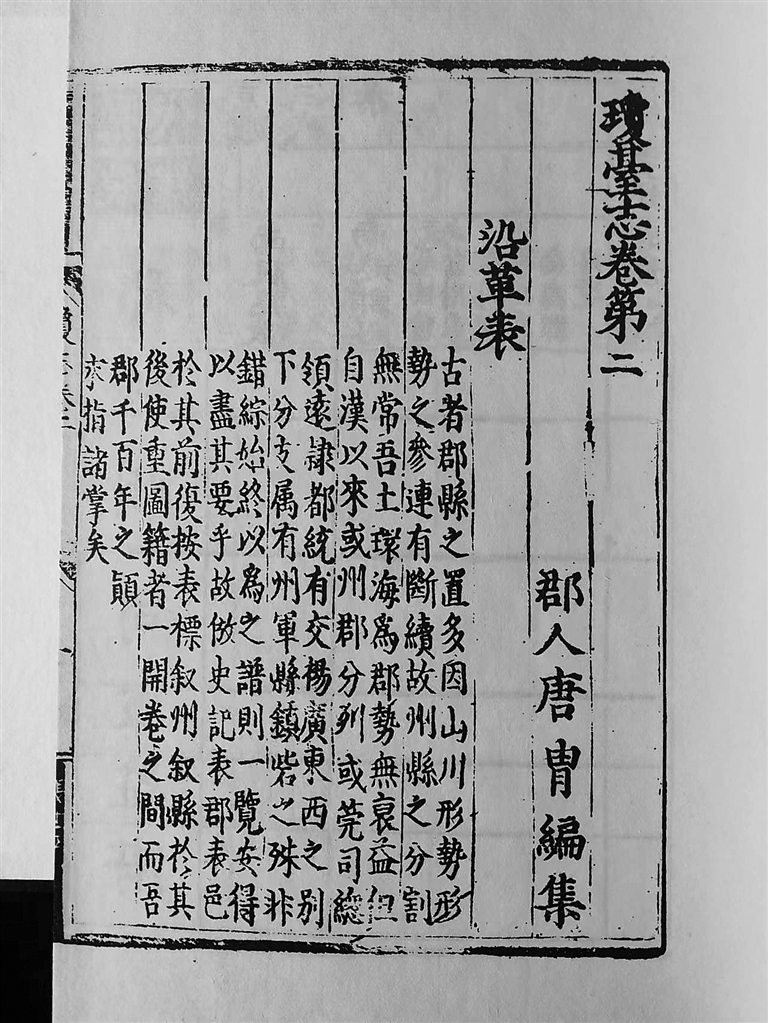 瓊臺志卷第二
郡人唐冑編集
沿革表
古者郡縣之置多因山川形勢形
勢之參連有斷續故州縣之分割
無常吾土環海爲郡勢無裒益但
自漢以來或州郡分列或莞司緫
領遠隷都統有交楊廣東西之别
下分支属有州軍縣鎮砦之殊非
錯綜始終以爲之譜則一覽安得
以盡其要乎故倣史記表郡表邑
於其前復按表標叙州叙縣於其
後使重圖籍者一開卷之間而吾
郡千百年之顛
末指諸掌矣